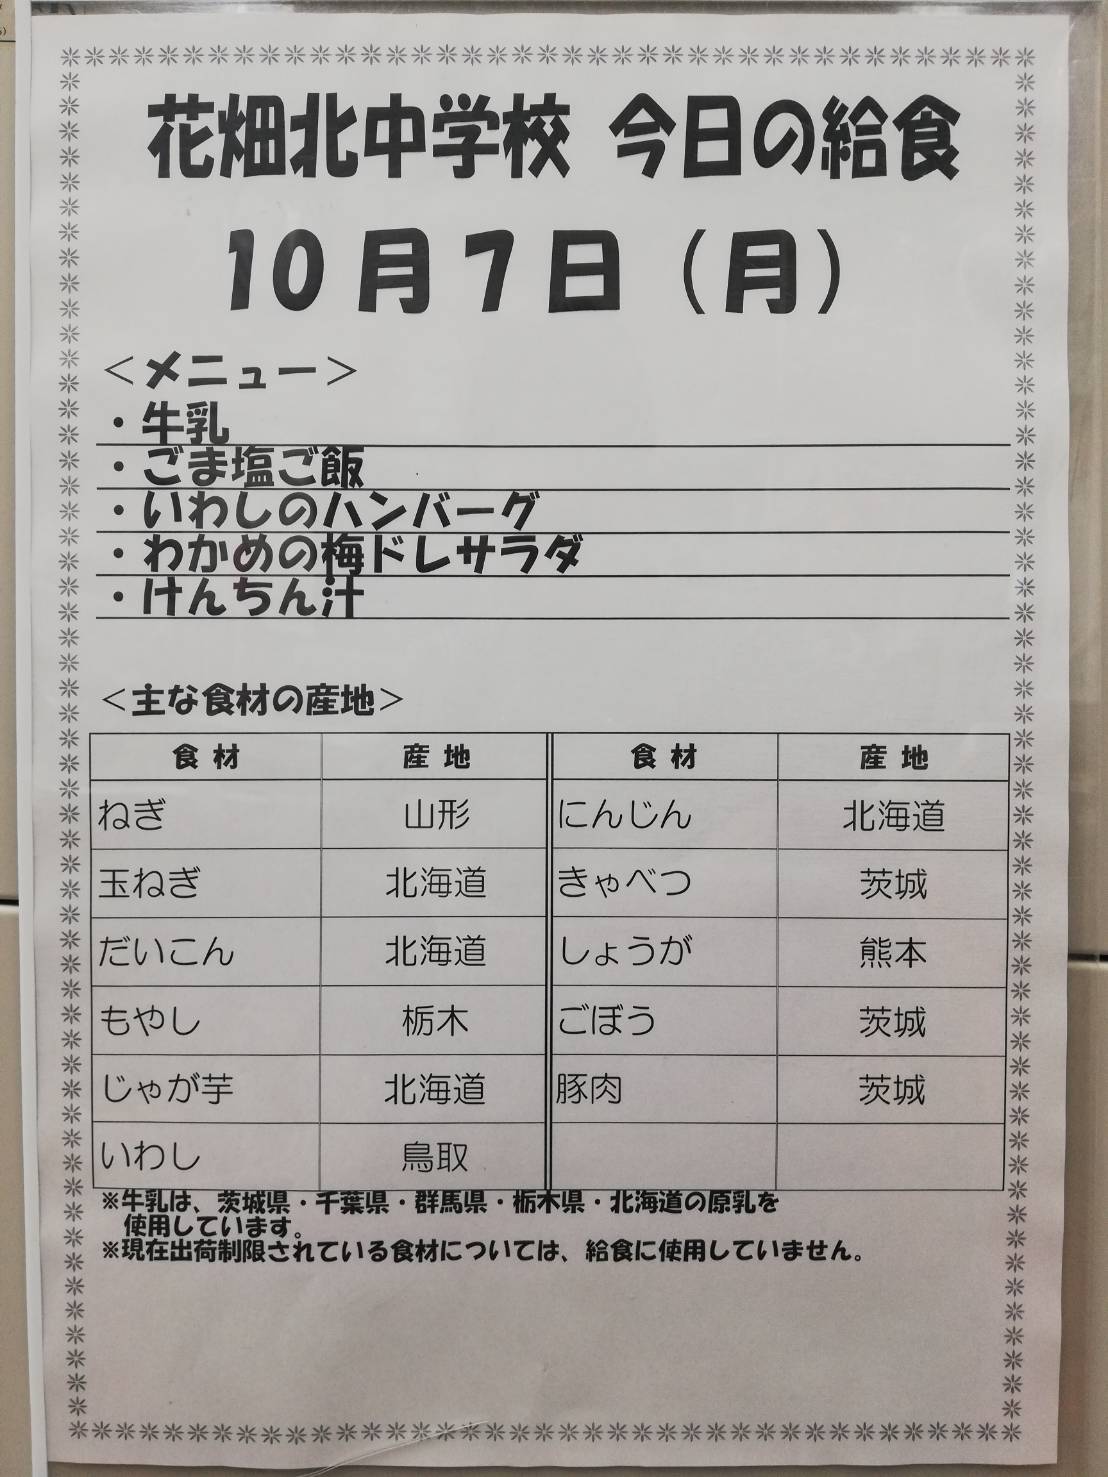 花畑北中学校 今日の給食
10月7日（月）
＜メニュー＞
・牛乳
・ごま塩ご飯
・いわしのハンバーグ
・わかめの梅ドレサラダ
・けんちん汁
＜主な食材の産地＞
食材 産地 食材 産地
ねぎ 山形 にんじん 北海道
玉ねぎ 北海道 きゃべつ 茨城
だいこん 北海道 しょうが 熊本
もやし 栃木 ごぼう 茨城
じゃが芋 北海道 豚肉 茨城
いわし 鳥取
※牛乳は、茨城県・千葉県・群馬県・栃木県・北海道の原乳を
使用しています。
※現在出荷制限されている食材については、給食に使用していません。